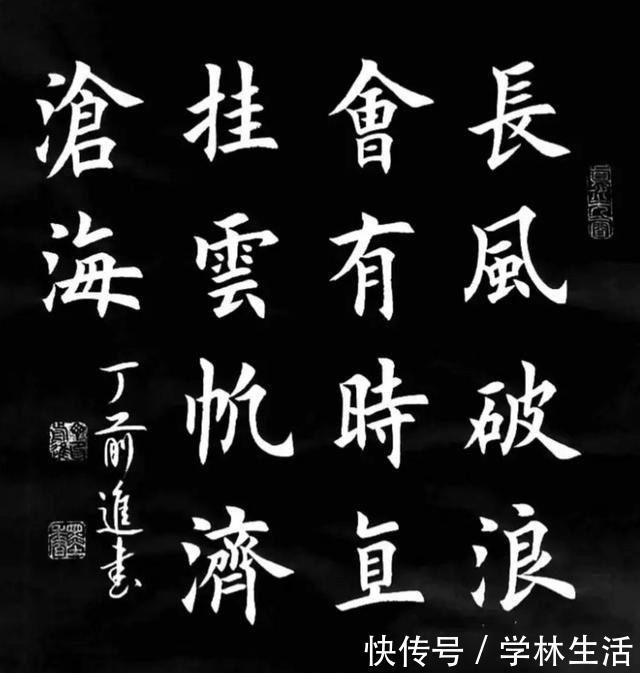 長風破浪
會有時直
挂雲帆濟
滄海
丁前進書
快传号 / 学林生活